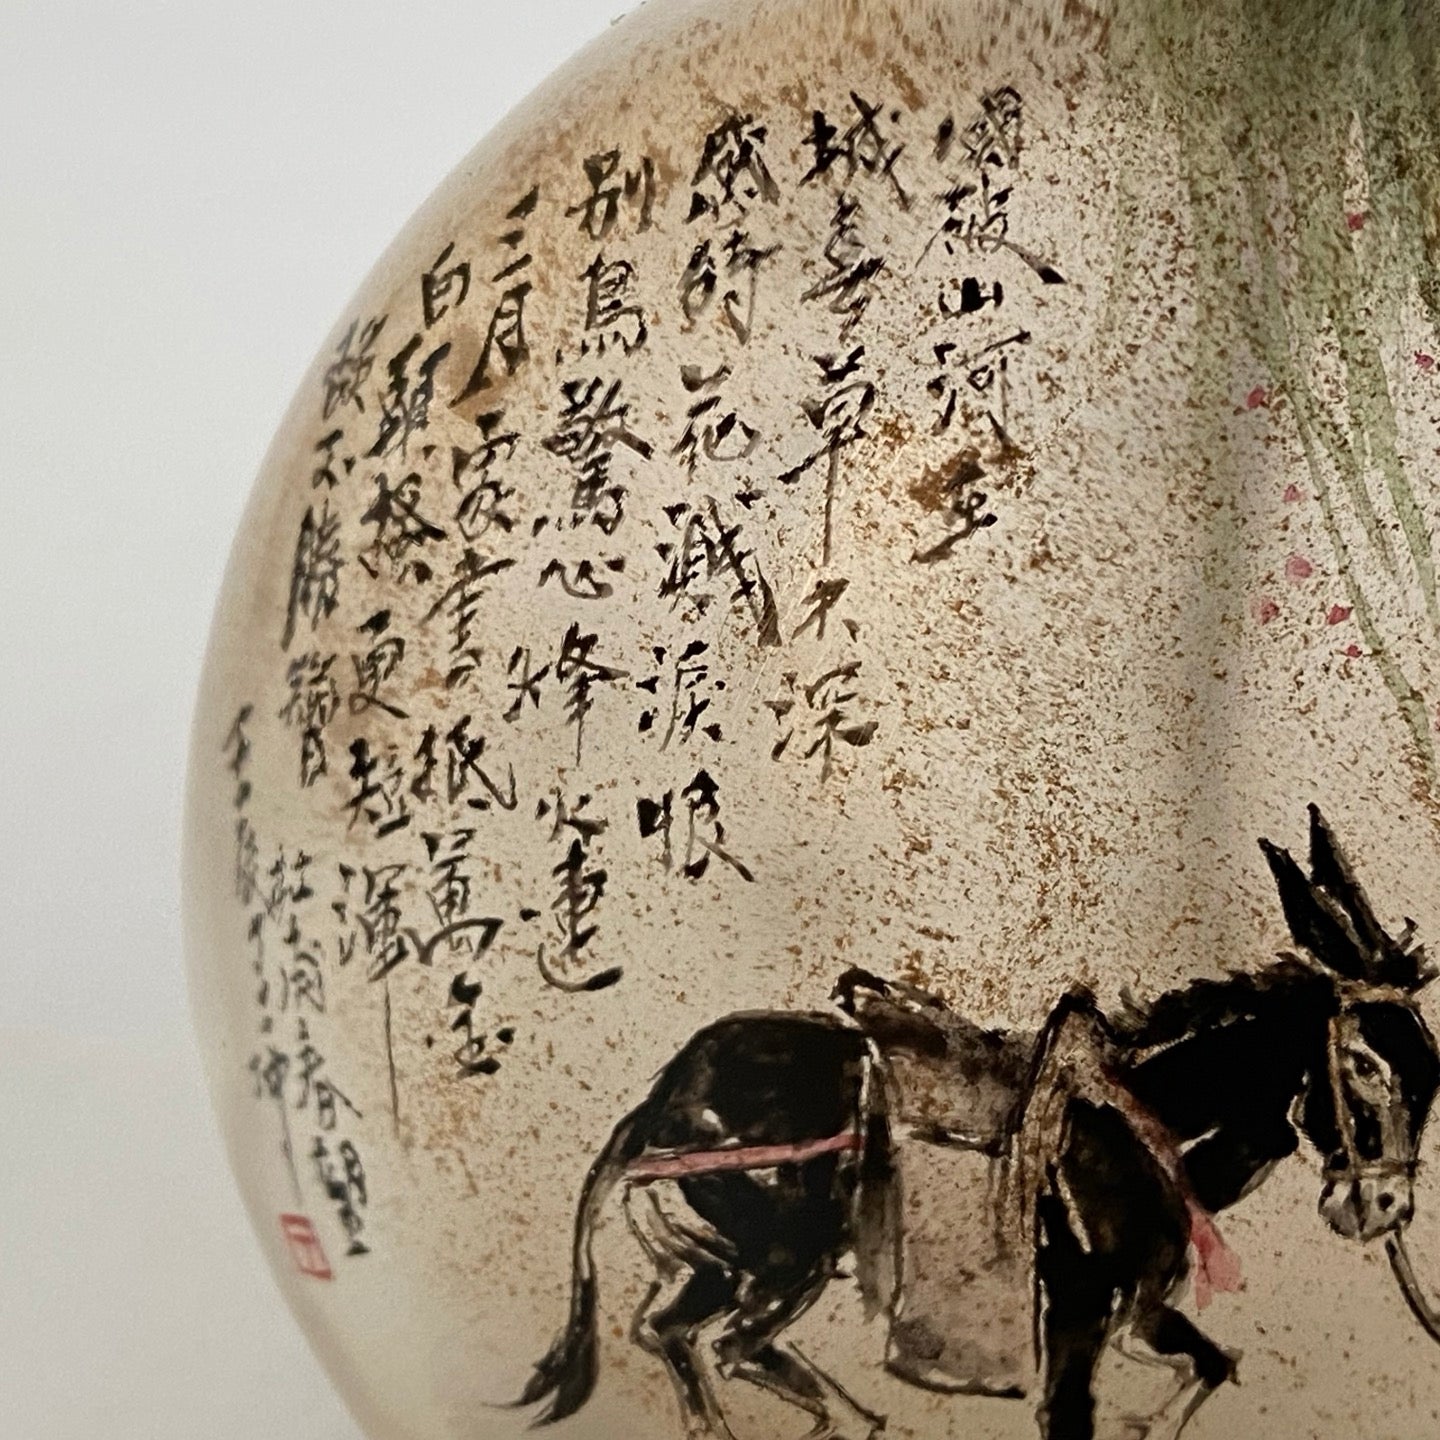 國破山河在
城春草木深
感時花濺淚恨
別鳥驚心烽火連
三月家書抵萬金
白頭搔更短渾
欲不勝簪
杜甫春望